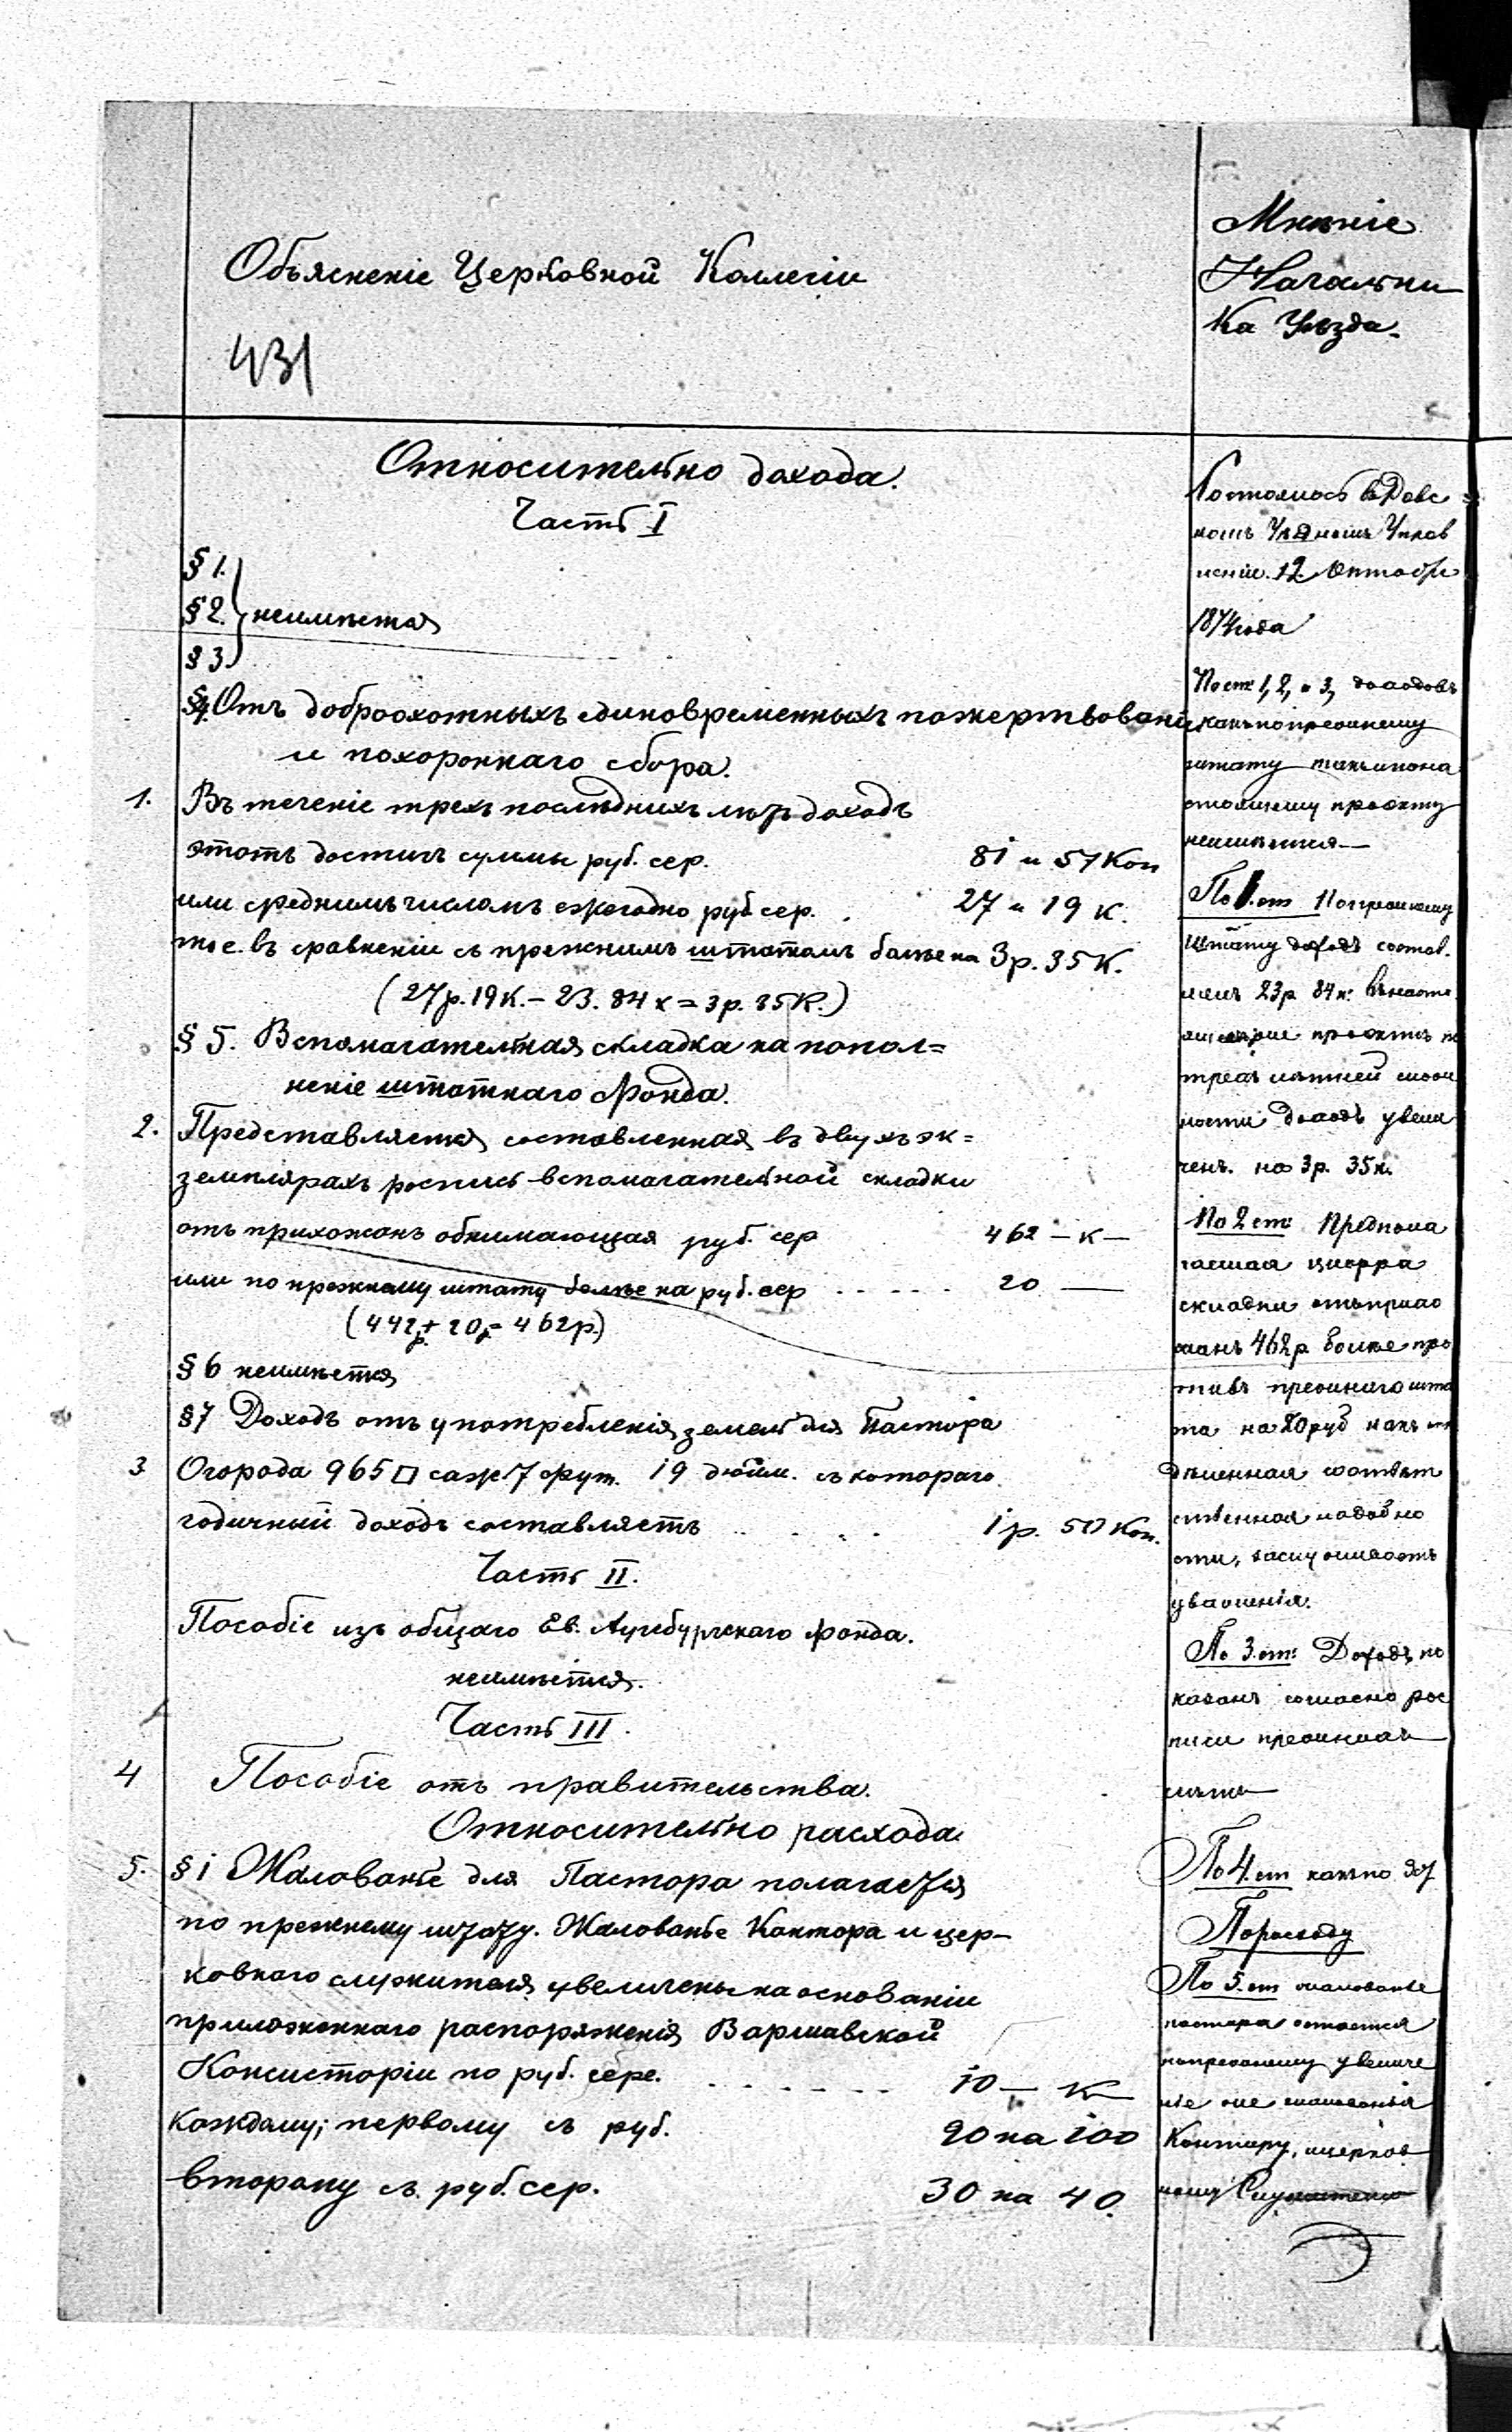 Объясненіе Церковной Коллегіи
431
Мнѣніе
Начальни
ка Уѣзда.
Относительно дохода.
Часть I
§ 1.
§ 2. неимѣется
§ 3.
§ 4. Отъ доброохотныхъ единовременныхъ пожертвованій
и похороннаго сбора.
1. Въ теченіе трехъ послѣднихъ лѣтъ доходъ
этотъ достигъ суммы руб. сер. 81 и 57 Коп
или среднимъ числомъ ежегодно руб сер. 27 и 19 к.
то е. въ сравненіи съ прежнимъ штатомъ болѣе на 3 р. 35 К.
(27 р. 19 К. – 23. 84 к = 3 р. 35 К.)
§ 5. Вспомагательная складка на попол=
неніе штатнаго Фонда.
2. Представляется составленная въ двухъ эк=
земплярахъ роспись вспомагательной складки
отъ прихожанъ обнимающая руб. сер 462 – к –
или по прежнему штату болѣе на руб. сер 20 —
(442 р. + 20 р. = 462 р.)
§ 6 неимѣется
§ 7 Доходъ отъ употребленія земель для Пастора
3 Огорода 965 □ саж. 7 фут. 19 дюйм. съ котораго
годичный доходъ составляетъ 1 р. 50 Коп.
Часть II.
Пособіе изъ общаго Ев. Аугсбургскаго фонда.
неимѣется.
Часть III.
4 Пособіе отъ правительства.
Относительно расхода.
5. § 1 Жалованье для Пастора полагается
по прежнему штату. Жалованье Кантора и цер-
ковнаго служителя увеличены на основаніи
приложеннаго распоряженія Варшавской
Консисторіи по руб. сере. 10 — К —
каждому; первому съ руб. 90 на 100
второму съ руб. сер. 30 на 40.
Состоялось въ
номъ Уѣздномъ Управ
леніи. 12 Октября
1874 года
По ст. 1, 2, и 3, доходовъ
какъ по прежнему
штату такъ и по на
стоящему проэкту
неимѣется —
По 1. ст По прежнему
Штату доходъ состав.
лялъ 23 р 84 к. Въ насто
ящемъ же проэктѣ по
трехъ лѣтней слож
ности доходъ увели
ченъ. на 3 р. 35 к.
По 2 ст. Предпола
гаемая цифра
складки отъ прихо
жанъ 462 р болѣе про
тивъ прежняго шта
та на 20 руб какъ
соотвѣт
ственная надобно
сти, заслуживаетъ
уваженія.
По 3. ст. Доходъ по
казанъ согласно рос
писи прежнихъ
лѣтъ
По 4. ст какъ по
По расходу
По 5. ст жалованье
пастора остается
по прежнему увеличе
ніе же жалованья
Кантору, и церков
ному Служителю